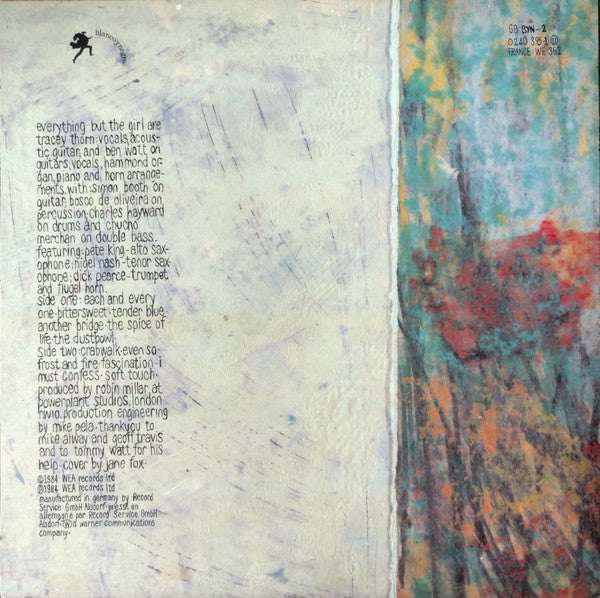 blancoynegro
GB BYN-2
240 395-1
FRANCE WE 361
everything but the girl are
tracey thorn·vocals, acous-
tic guitar, and ben watt on
guitars, vocals, hammond or-
gan, piano and horn arrange-
ments, with·simon booth on
guitar, bosco de oliveira on
percussion, charles hayward
on drums and chucho
merchan on double bass,
featuring: pete king-alto sax-
ophone; nigel nash-tenor sax-
ophone; dick pearce-trumpet
and flugel horn.
side one·each and every
one·bittersweet·tender blue·
another bridge·the spice of
life·the dustbowl
side two·crabwalk·even so·
frost and fire·fascination·i
must confess·soft touch·
produced by robin millar, at
powerplant studios, london
nw10. production engineering
by mike pela·thankyou to
mike alway and geoff travis
and to tommy watt for his
help·cover by jane fox·
©1984 WEA records ltd
℗1984 WEA records ltd
manufactured in germany by Record
Service GmbH Alsdorf·pressé en
allemagne par Record Service GmbH
Alsdorf·Ⓦa warner communications
company·